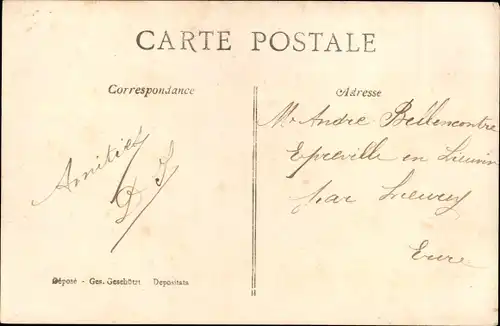 CARTE POSTALE
Correspondance
Adresse
Mr André Bellencontre
Epreville en Lieuvin
par Lieurey
Eure
Amitiés
D J
Déposé - Ges. Geschützt Depositata